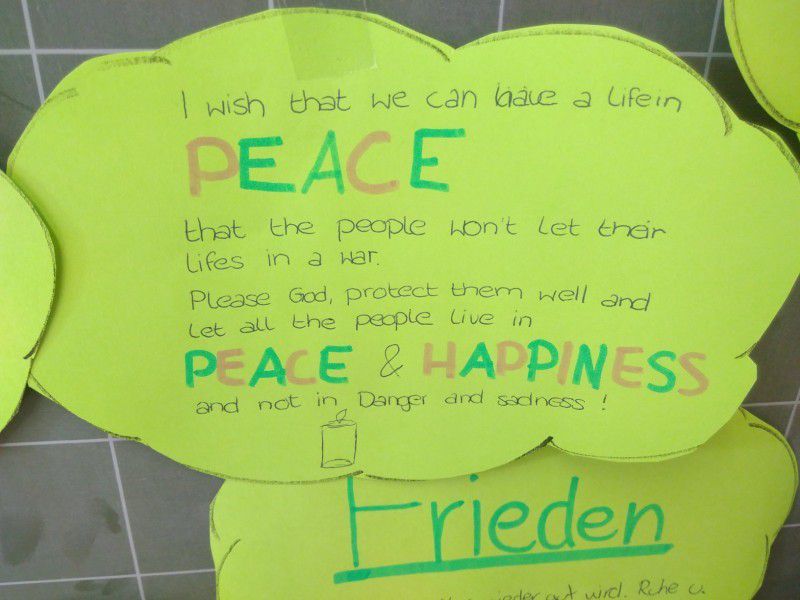 I wish that we can have a life in
PEACE
that the people won't let their
lifes in a war.
Please God, protect them well and
let all the people live in
PEACE & HAPPINESS
and not in Danger and sadness!
Frieden
wieder gut wird. Ruhe u.